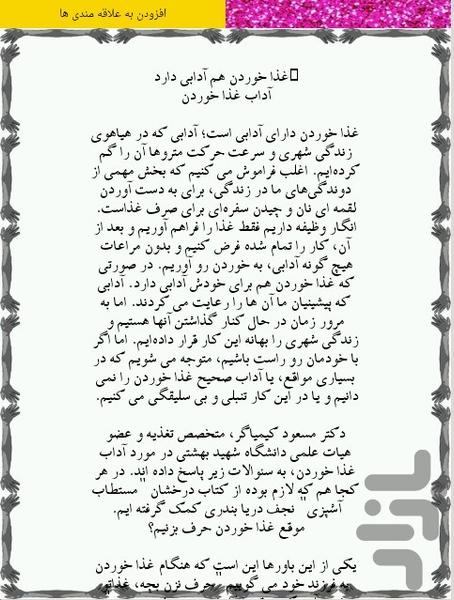 افزودن به علاقه مندی ها
غذا خوردن هم آدابی دارد
آداب غذا خوردن
غذا خوردن دارای آدابی است؛ آدابی که در هیاهوی
زندگی شهری و سرعت حرکت متروها آن را گم
کرده‌ایم. اغلب فراموش می کنیم که بخش مهمی از
دوندگی‌های ما در زندگی، برای به دست آوردن
لقمه ای نان و چیدن سفره‌ای برای صرف غذاست.
انگار وظیفه داریم فقط غذا را فراهم آوریم و بعد از
آن، کار را تمام شده فرض کنیم و بدون مراعات
هیچ گونه آدابی، به خوردن رو آوریم. در صورتی
که غذا خوردن هم برای خودش آدابی دارد. آدابی
که پیشینیان ما آن ها را رعایت می کردند. اما به
مرور زمان در حال کنار گذاشتن آنها هستیم و
زندگی شهری را بهانه این کار قرار داده‌ایم. اما اگر
با خودمان رو راست باشیم، متوجه می شویم که در
بسیاری مواقع، یا آداب صحیح غذا خوردن را نمی
دانیم و یا در این کار تنبلی و بی سلیقگی می کنیم.
دکتر مسعود کیمیاگر، متخصص تغذیه و عضو
هیات علمی دانشگاه شهید بهشتی در مورد آداب
غذا خوردن، به سئوالات زیر پاسخ داده اند. در هر
کجا هم که لازم بوده از کتاب درخشان "مستطاب
آشپزی" نجف دریا بندری کمک گرفته ایم.
موقع غذا خوردن حرف بزنیم؟
یکی از این باورها این است که هنگام غذا خوردن
به فرزند خود می گوییم "حرف نزن بچه، غذاتو
بازار